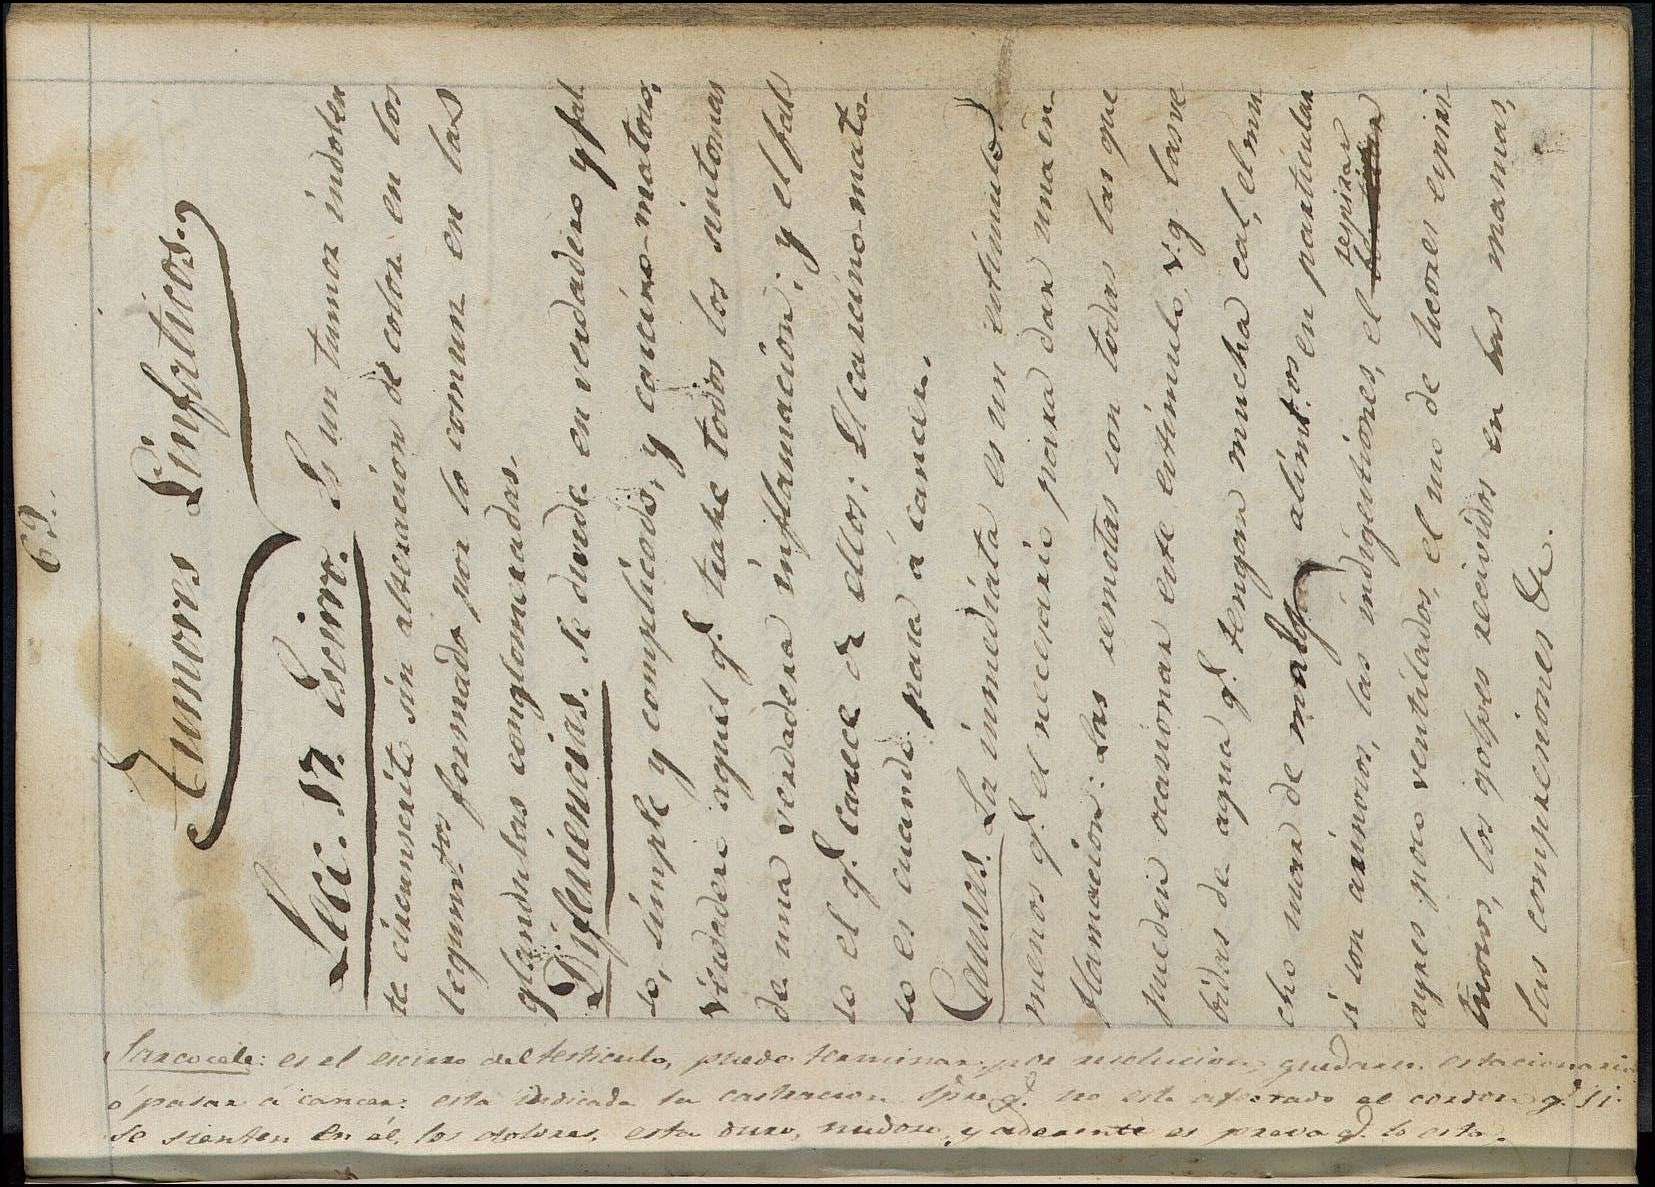 69.
Tumores Linfaticos.
Lecc. 17. Escirro. Es un tumor indolen
te circunscrito sin alteracion de color en los
tegumtos formado por lo comun en las
glandulas conglomeradas.
Diferiencias. Se divide en verdadero y fal
so, simple y complicado, y carcino-matoso,
Verdadero aquel q.e trahe todos los sintomas
de una verdadera inflamacion; y el fal
so el q.e carece de ellos: El carcino-mato-
so es cuando pasa á cancer.
Causas. La inmediata es un estimulo
menos q.e el necesario para dar una in-
flamacion: Las remotas son todas las que
puedan ocasionar este estimulo, v.g las ve
bidas de agua q.e tengan mucha cal, el mu
cho usar de malos alimt.os en particular
si son animosos, las indigestiones, el respirar
ayres poco ventilados, el uso de licores espiri-
tuosos, los golpes recividos en las mamas,
las compresiones &c.
Sarcocele: es el escirro del testiculo, puede terminar por resolucion, quedarse estacionario
ó pasar á cancer: esta indicada la castracion spre q.e no este afectado el cordon q.e si
se sienten en él, los dolores, esta duro, nudoso, y aderente es prova q.e lo esta.